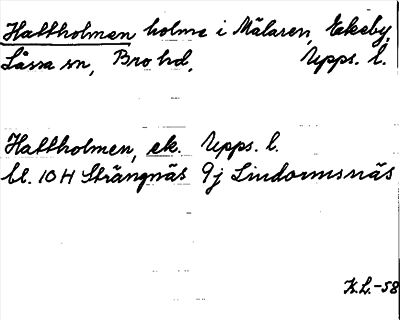 Hattholmen holme i Mälaren, Ekeby,
Låssa sn, Bro hd, Upps. l.
Hattholmen, ek. Upps. l.
bl. 10H Strängnäs 9j Lindormsnäs
K.L.-58